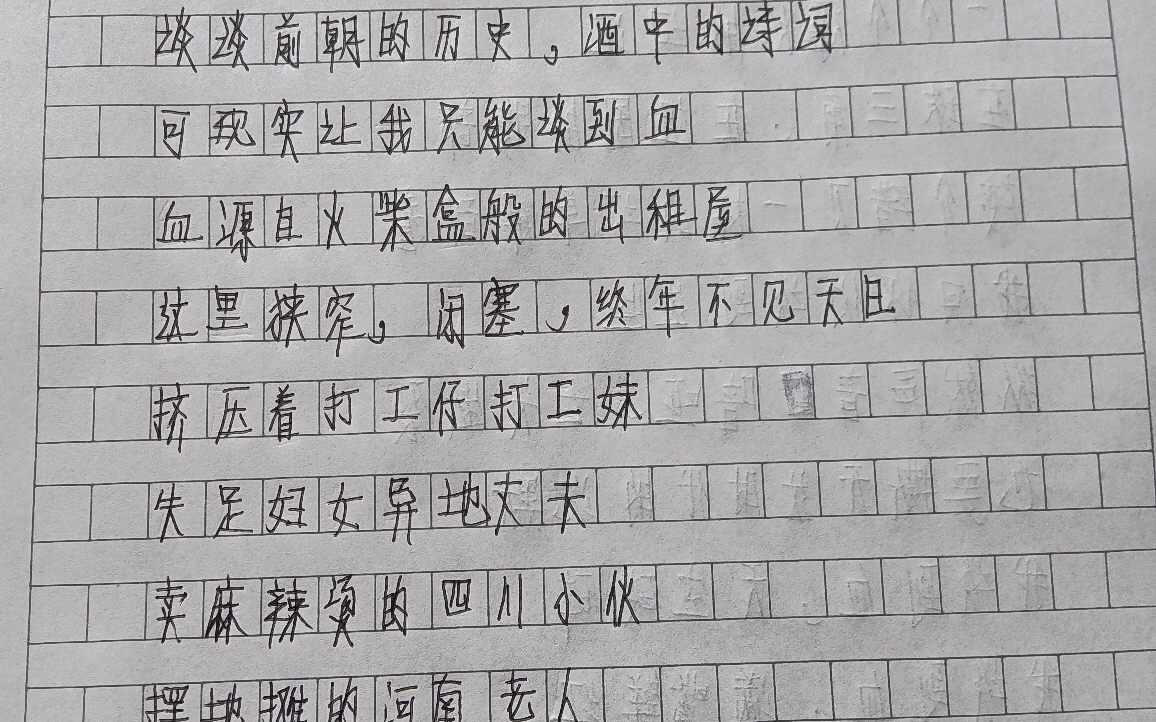 谈谈前朝的历史,酒中的诗词
可现实让我只能谈到血
血源自火柴盒般的出租屋
这里狭窄,闭塞,终年不见天日
挤压着打工仔打工妹
失足妇女异地丈夫
卖麻辣烫的四川小伙
摆地摊的河南老人